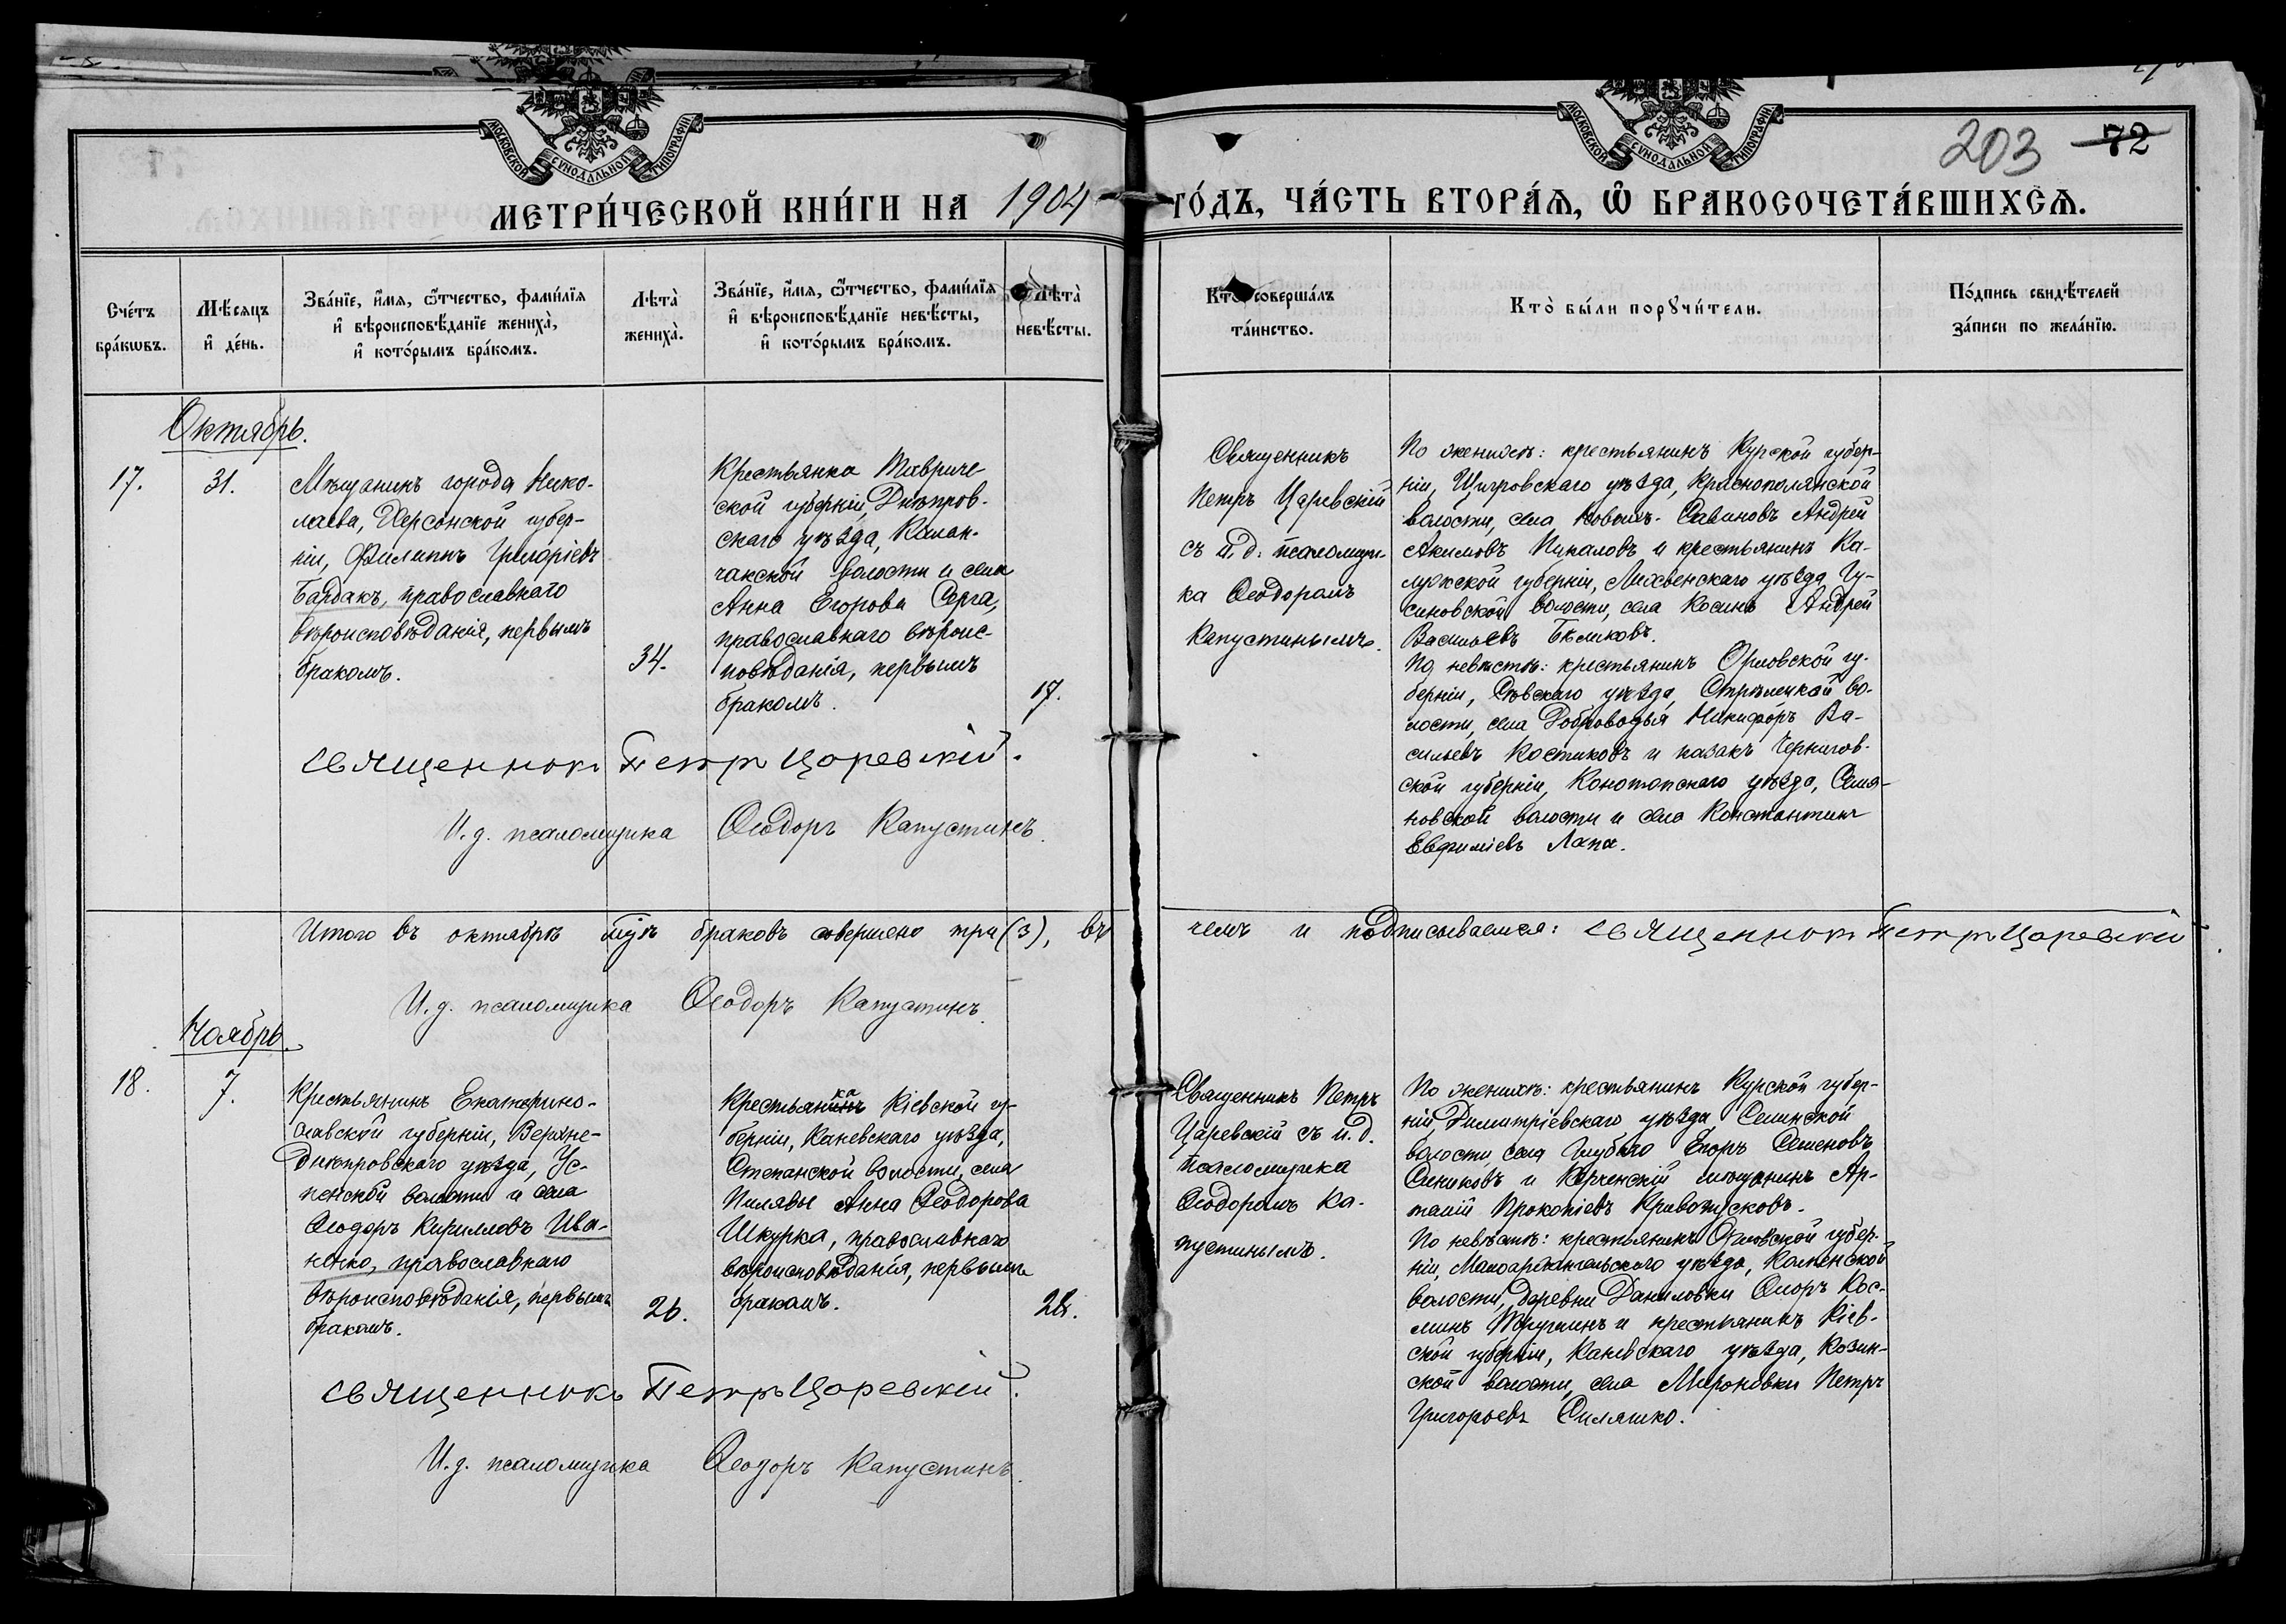 МОСКОВСКОЙ СѴНОДАЛЬНОЙ ТИПОГРАФІИ
МОСКОВСКОЙ СѴНОДАЛЬНОЙ ТИПОГРАФІИ
203 72
МЕТРИ́ЧЕСКОЙ КНИ́ГИ НА 1904 ГО́ДЪ, ЧА́СТЬ ВТОРА́Ѧ, Ѽ БРАКОСОЧЕТА́ВШИХСѦ.
Сче́тъ
бра́кѡвъ.
Мѣ́сяцъ
и҆ де́нь.
Зва́нїе, и҆́мя, ѻ҆́тчество, фами́лїя
и҆ вѣроисповѣ́данїе жениха̀,
и҆ кото́рымъ бра́комъ.
Лѣта̀
жениха̀.
Зва́нїе, и҆́мя, ѻ҆́тчество, фами́лїя
и҆ вѣроисповѣ́данїе невѣ́сты,
и҆ кото́рымъ бра́комъ.
Лѣта̀
невѣ́сты.
Кто̀ соверша́лъ
та́инство.
Кто̀ бы́ли порꙋчи́тели.
По́дпись свидѣ́телей
за́писи по жела́нїю.
Октябрь.
17.
31.
Мѣщанинъ города Нико-
лаева, Херсонской губер-
ніи, Филиппъ Григоріевъ
Бардакъ, православнаго
вѣроисповѣданія, первымъ
бракомъ.
34.
Крестьянка Тавриче
ской губерніи, Днѣпров-
скаго уѣзда, Калан-
чакской волости и села
Анна Егорова Серга,
православнаго вѣроис-
повѣданія, первымъ
бракомъ.
17.
Священникъ
Петръ Царевскій
съ и.д. псаломщи-
ка Ѳеодоромъ
Капустинымъ.
По женихѣ: крестьянинъ Курской губер-
ніи, Щигровскаго уѣзда, Краснополянской
волости, села Новыхъ-Савиновъ Андрей
Акимовъ Пукаловъ и крестьянинъ Ка-
лужской губерніи, Лихвенскаго уѣзда, Гу-
синовской волости, села Косинъ Андрей
Васильевъ Бѣликовъ.
По невѣстѣ: крестьянинъ Орловской гу-
берніи, Сѣвскаго уѣзда, Стрѣлецкой во-
лости, села Доброводья Никифоръ Ва-
сильевъ Костиковъ и казакъ Чернигов-
ской губерніи, Конотопскаго уѣзда, Семя-
новской волости и села Константинъ
Евфиміевъ Лапа.
священникъ Петръ Царевскій.
И.д. псаломщика Ѳеодоръ Капустинъ.
Итого въ октябрѣ м-цѣ браковъ совершено три (3), въ чемъ и подписываемся: священникъ Петръ Царевскій
И.д. псаломщика Ѳеодоръ Капустинъ.
Ноябрь.
18.
7.
Крестьянинъ Екатерино-
славской губерніи, Верхне-
днѣпровскаго уѣзда, Ус-
пенской волости и села
Ѳеодоръ Кирилловъ Ива-
ненко, православнаго
вѣроисповѣданія, первымъ
бракомъ.
26.
Крестьянка Кіевской гу-
берніи, Каневскаго уѣзда,
Степанской волости, села
Пилявы Анна Ѳеодорова
Шкурка, православнаго
вѣроисповѣданія, первымъ
бракомъ.
Священникъ Петръ
Царевскій съ и.д.
псаломщика
Ѳеодоромъ Ка-
пустинымъ.
По женихѣ: крестьянинъ Курской губер-
ніи, Димитріевскаго уѣзда Селинской
волости села Глубкаго Егоръ Семеновъ
Синиковъ и Керченскій мѣщанинъ Ар-
темій Прокопіевъ Кривожусковъ.
По невѣстѣ: крестьянинъ Орловской губер-
ніи, Малоархангельскаго уѣзда, Каменской
волости, деревни Даниловки Ѳлоръ Кос-
минъ и крестьянинъ Кіев-
ской губерніи, Каневскаго уѣзда, Козин-
ской волости, села Мироновки Петръ
Григорьевъ Силяшко.
священникъ Петръ Царевскій.
И.д. псаломщика Ѳеодоръ Капустинъ.